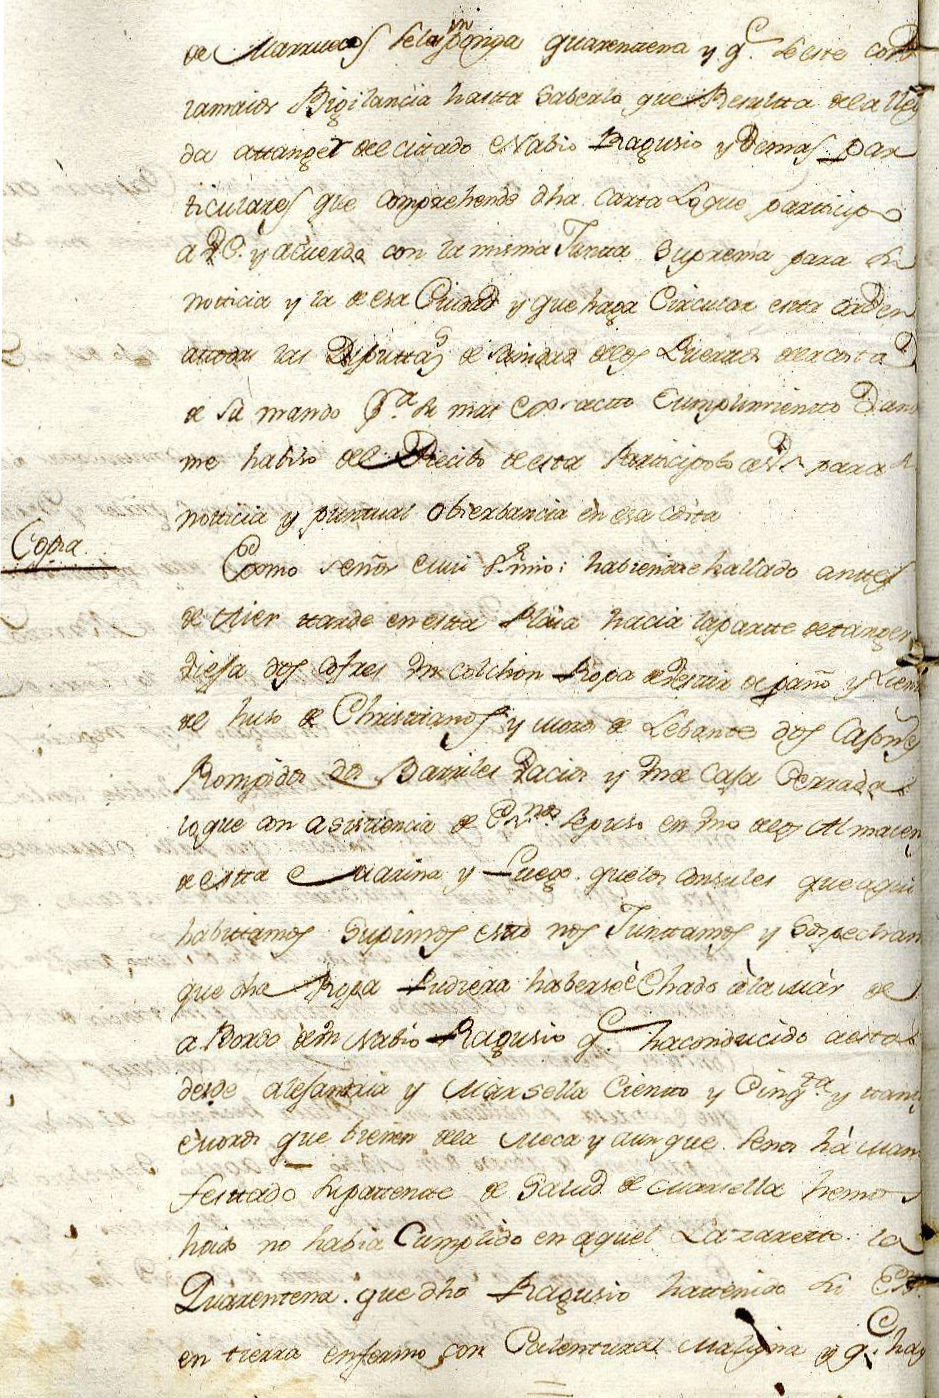 de Marruecos se la ymponga quarentena y q.e se este con
ramaior Bigilancia hasta saberlo que Resulta de la lleg
da attanger del cittado Nabio Ragusio y Demas par
ticulares que comprehende dha. Carta Lo que participo
a VS. y acuerdo con la misma Junta Suprema para su
notticia y la de esa Ciudad y que haga Circular esta orden
attodas las Diputtas de Sanidad de los Puertos de la costa
de su mando p.a su mas exsactto Cumplimientto Dand
me habiso del Recibo de esta Participolo a V para su
notticia y puntual obserbancia en esa costa
Copia.
Exmo señor mui S.r mio: habiendose hallado anttes
de Aier ttarde en esta Plaia hacia la partte de tanger
Viessa dos cofres un colchon Ropa de Vestir de paño y Lienz
del huso de Christianos y moros de Lebante dos Casones
Rompidos dos Barriles Vacios y una Casa Cerrada
lo que con asisttencia de Se puso en uno de los Almacen
de esta Marina y Luego que los consules que aqui
habittamos Supimos esto nos Junttamos y Sospechan
que dha Ropa Pudiera haberse èChado à la Màr de
a Bordo de un Nabio Ragusio q.e ha conducido a esta
desde alejandria y Marsella Ciento y Cinq.ta y ttants
Moros que bienen de la Meca y aunque se nos há Mani
festtado su pattentte de Salud de Marsella hemos s
hido no habia Cumplido en aquel Lazaretto la
Quarentena. que dho Ragusio ha ttenido su
en tierra enfermo con Calenturas Maligna y q.e hay